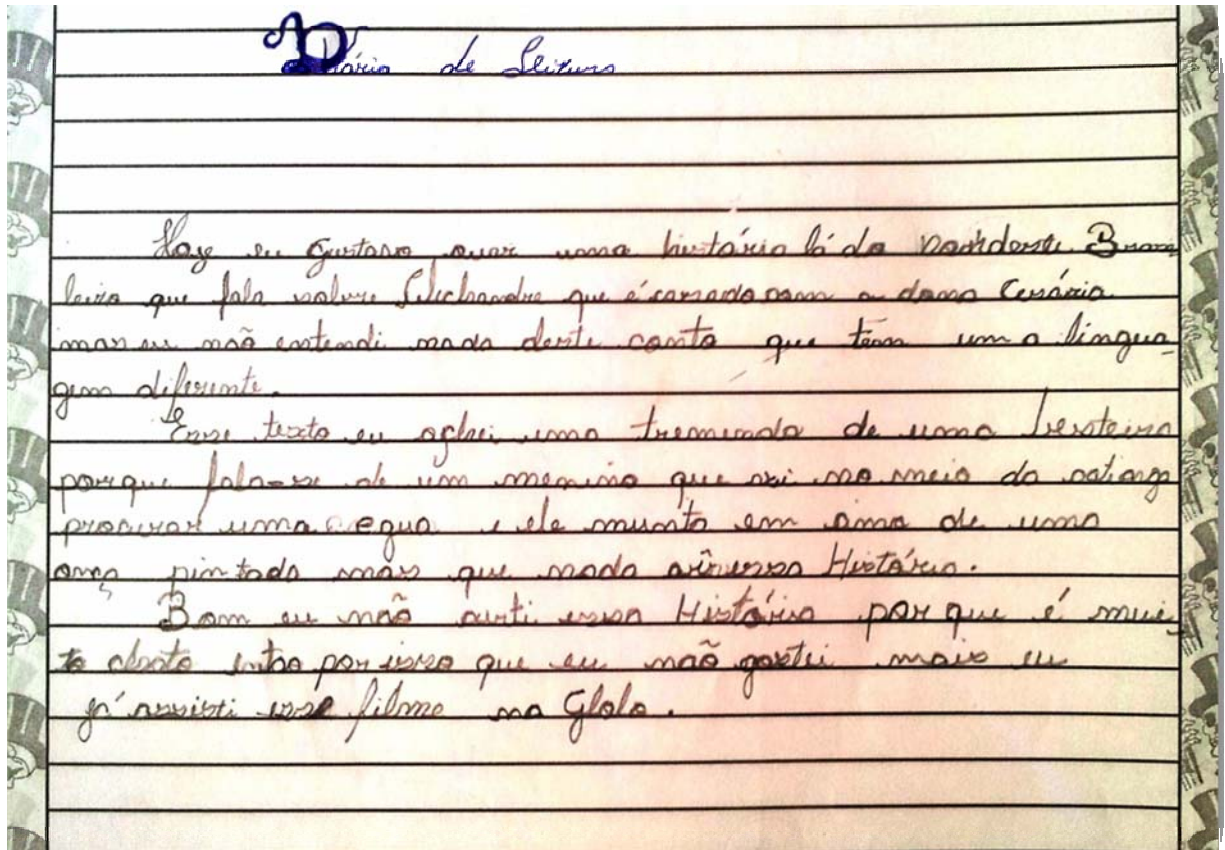 Diário de Leitura
Hoje eu Gustavo ouvi uma história lá do nordeste Brasi
leiro que fala sobre Alechandre que é casado com a dona Cesária
mas eu não entendi nada deste conto que tem um a lingua
gem diferente.
Esse texto eu achei uma tremenda de uma besteira
porque fala-se de um menino que vai no meio da catinga
procurar uma egua e ele munto em cima de uma
onça pintada mas que nada a ver essa História.
Bom eu não curti essa História por que é mui-
to chato então por isso que eu não gostei mais eu
já assisti esse filme na Globo.